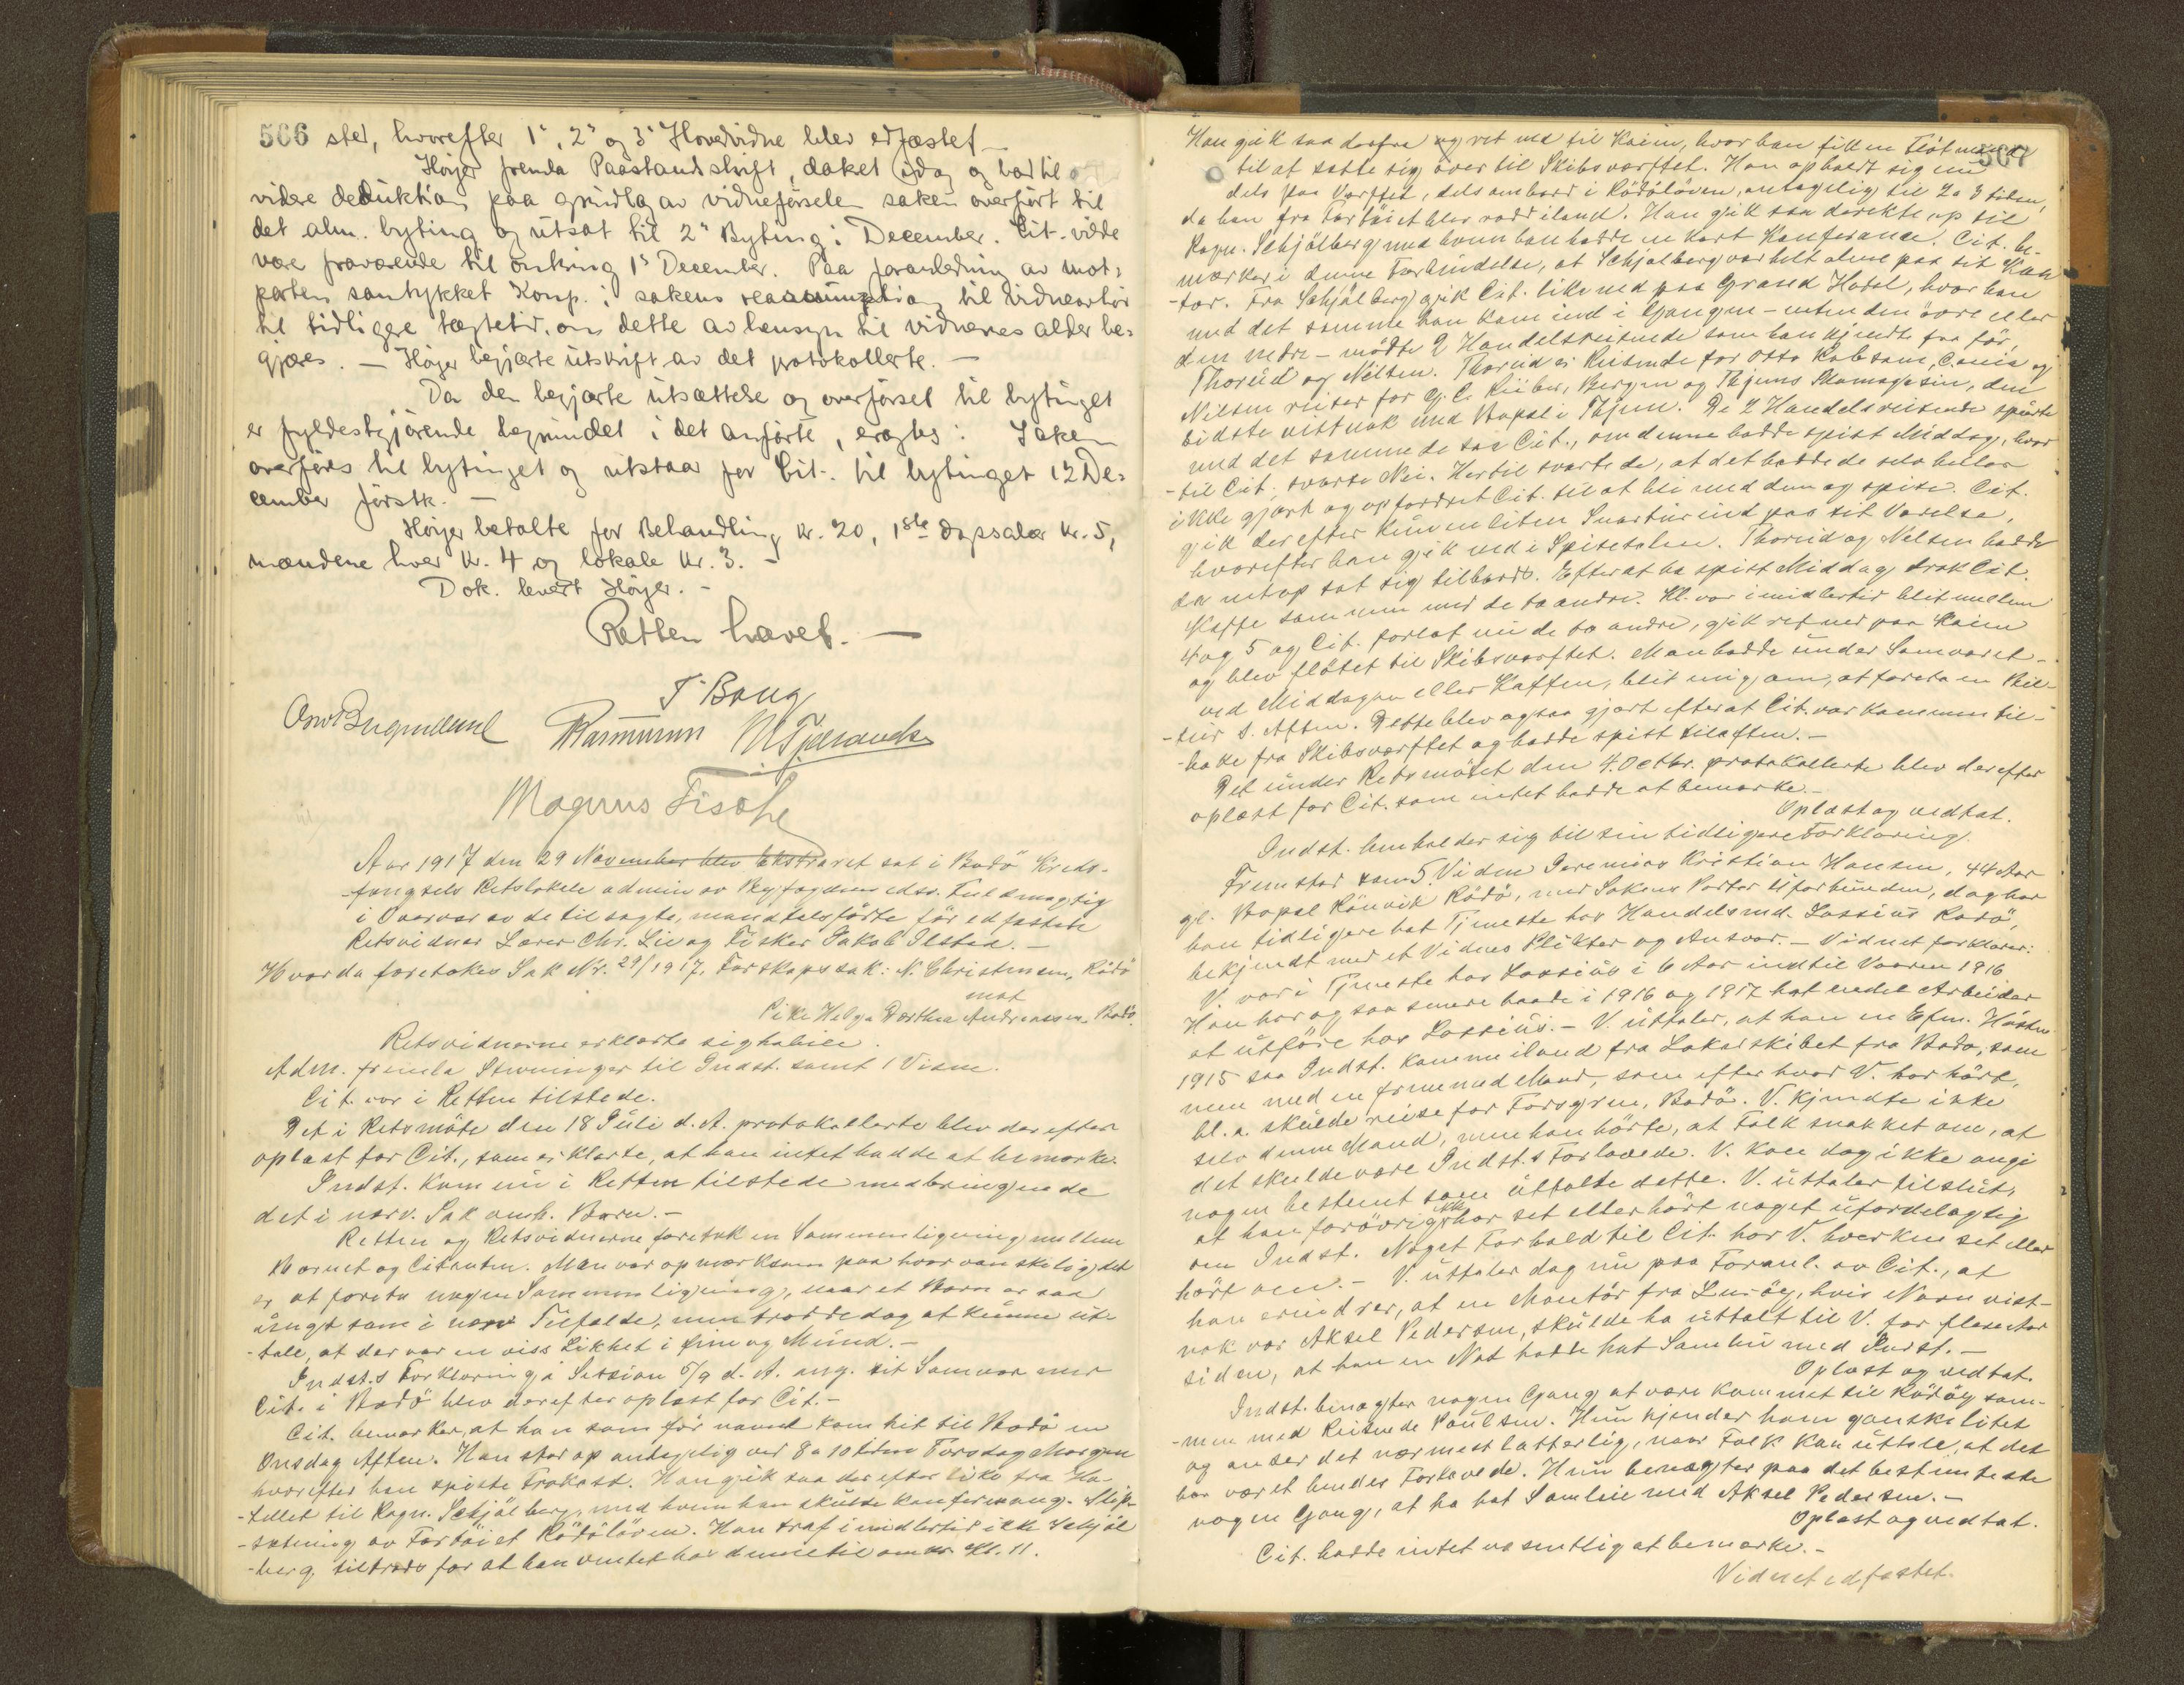 566 sted, hvorefter 1', 2' og 3' Hovedvidne blev edfæstet. —
Høyer fremla Paastandskrift, datert idag og bad til
videre deduktion paa grundlag av vidneførselen saken overført til
det alm. byting og utsat til 2' Byting i December. Cit. vilde
være fraværende til omkring 1' December. Paa foranledning av mot-
parten samtykket Komp. i sakens reassumption til vidneavhør
til tidligere tægtetid, om dette av hensyn til vidnernes alder be-
gjæres. — Høyer begjærte utskrift av det protokollerte. —
Da den begjærte utsættelse og overførsel til bytinget
er fyldestgjørende begrundet i det anførte, eragtes: Saken
overføres til bytinget og utstaar for Cit. til bytinget 12 De-
cember førstk. —
Høyer betalte for Behandling kr. 20, 1ste dagssalær kr. 5,
mændene hver kr. 4 og lokale kr. 3. —
Dok. levert Høyer. —
Retten hævet. —
T. Bang
Rasmussen
Magnus Fische
Aar 1917 den 29 November blev Ekstraret sat i Bodö Kreds-
-fængsels Retslokale admin av Byfogdens edsv. Fuldmægtig
i Overvær av de tilsagte, mandtalsførte før edfæstede
Retsvidner Lærer Chr. Lie og Fisker Jakob Ilstad. —
Hvorda foretokes Sak Nr. 29/1917, Farskapssak: N. Christensen, Rödö
mot
Pike Helga Dorthea Andreassen, Bodö.
Retsvidnerne erklærte sig habile.
Adm. fremla Stevninger til Indst. samt 1 Vidne.
Cit. var i Retten tilstede.
Det i Retsmöte den 18 Juli d. A. protokollerte blev derefter
oplæst for Cit., som erklærte, at han intet hadde at bemærke.
Indst. kom nu i Retten tilstede medbringende
det i nærv. Sak omh. Barn. —
Retten og Retsvidnerne foretok en Sammenligning mellem
Barnet og Citanten. Man var opmærksom paa hvor vanskelig det
er at foreta nogen Sammenligning, naar et Barn er saa
ungt som i nærv Tilfælde, men trodde dog at kunne ut-
-tale, at der var en viss Likhet i Öine og Mund. —
Indst.s Forklaring i Session 5/9 d. A. ang. sit Samvær med
Cit. i Bodö blev derefter oplæst for Cit. —
Cit. bemærker, at han som för nævnt kom hit til Bodö en
Onsdag Aften. Han stod op antagelig ved 8 a 10 tiden Torsdag Morgen
hvorefter han spiste Frokost. Han gik saa derefter like fra Ho-
-tellet til Kapn. Schjölberg, med hvem han skulde konferere ang. Slip-
-sætning av Fartöiet Rödölöven. Han traf imidlertid ikke Schjöl
-berg tiltrods for at han ventet hos denne til omkr. Kl. 11.
567
Han gik saa derfra og ret ned til Kaien, hvor han fik en Flötmand
til at sætte sig over til Skibsværftet. Han opholdt sig nu
dels paa Værftet, dels ombord i Rödölöven, antagelig til 2 a 3 tiden,
da han fra Fartöiet blev rodd iland. Han gik saa direkte op til
Kapn. Schjölberg med hvem han hadde en kort Konferance. Cit. be-
mærker i denne Forbindelse, at Schjölberg var helt alene paa sit Kon
-tor. Fra Schjölberg gik Cit. like ned paa Grand Hotel, hvor han
med det samme han kom ind i Gangen – enten den övre eller
den nedre – mödte 2 Handelsreisende som han kjendte fra för,
Thorud og Nilsen. Thorud er Reisende for Otto Robsam, C.ania og
Nilsen reiser for G. C. Rieber, Bergen og Thjems Skomagasin, den
sidste vistnok med Bopæl i Thjem. De 2 Handelsreisende spurte
med det samme de saa Cit., om denne hadde spist Middag, hvor
-til Cit. svarte Nei. Hertil svarte de, at det hadde de selv heller
ikke gjort og opfordret Cit. til at bli med dem og spise. Cit.
gik derefter kun en liten Snartur ind paa sit Værelse,
hvorefter han gik ned i Spisesalen. Thorud og Nilsen hadde
da netop sat sig tilbords. Efter at ha spist Middag drak Cit.
Kaffe sammen med de to andre. Kl. var imidlertid blit mellem
4 og 5 og Cit. forlot nu de to andre, gik ret ned paa Kaien
og blev flötet til Skibsværftet. Man hadde under Samværet –
ved Middagen eller Kaffen, blit enig om, at foreta en Bil-
-tur s. Aften. Dette blev ogsaa gjort efterat Cit. var kommen til-
-bake fra Skibsværftet og hadde spist tilaften. —
Det under Retsmötet den 4. Octbr. protokollerte blev derefter
oplæst for Cit. som intet hadde at bemærke. —
Oplæst og vedtat.
Indst. henholder sig til sin tidligere Forklaring.
Fremstod som 5. Vidne Jeremias Kristian Hansen, 44 Aar
gl. Bopæl Rönvik Rödö, med Sakens Parter uforbunden, dog har
han tidligere hat Tjeneste hos Handelsmd. Lossius Rödö,
bekjendt med et Vidnes Plikter og Ansvar. — Vidnet forklarer:
V. var i Tjeneste hos Lossius i 6 Aar indtil Vaaren 1916
Han har ogsaa senere baade i 1916 og 1917 hat endel Arbeider
at utföre hos Lossius. — V. uttaler, at han en Efm. Hösten
1915 saa Indst. komme iland fra Lokalskibet fra Bodö, sam
men med en fremmed Mand, som efter hvad V. har hört,
bl. a. skulde reise for Forsgren, Bodö. V. kjendte ikke
selv denne Mand, men han hörte, at Folk snakket om, at
det skulde være Indst.s Forlovede. V. kan dog ikke angi
nogen bestemt som uttalte dette. V. uttaler tilslut,
at han forövrig ikke har set eller hört noget ufordelagtig
om Indst. Noget Forhold til Cit. har V. hverken set eller
hört om. — V. uttaler dog nu paa Foranl. av Cit., at
han erindrer, at en Montör fra Luröy, hvis Navn vist-
nok var Aksel Pedersen, skulde ha uttalt til V. for flere Aar
siden, at han en Nat hadde hat Samleie med Indst. —
Oplæst og vedtat.
Indst. benægter nogen Gang at være kommet til Rödöy sam-
-men med Reisende Poulsen. Hun kjender ham ganske litet
og anser det nærmest latterlig, naar Folk kan uttale, at det
har været hendes Forlovede. Hun benægter paa det bestemteste
nogen Gang, at ha hat Samleie med Aksel Pedersen. —
Oplæst og vedtat.
Cit. hadde intet væsentlig at bemærke. —
Vidnet edfæstet.